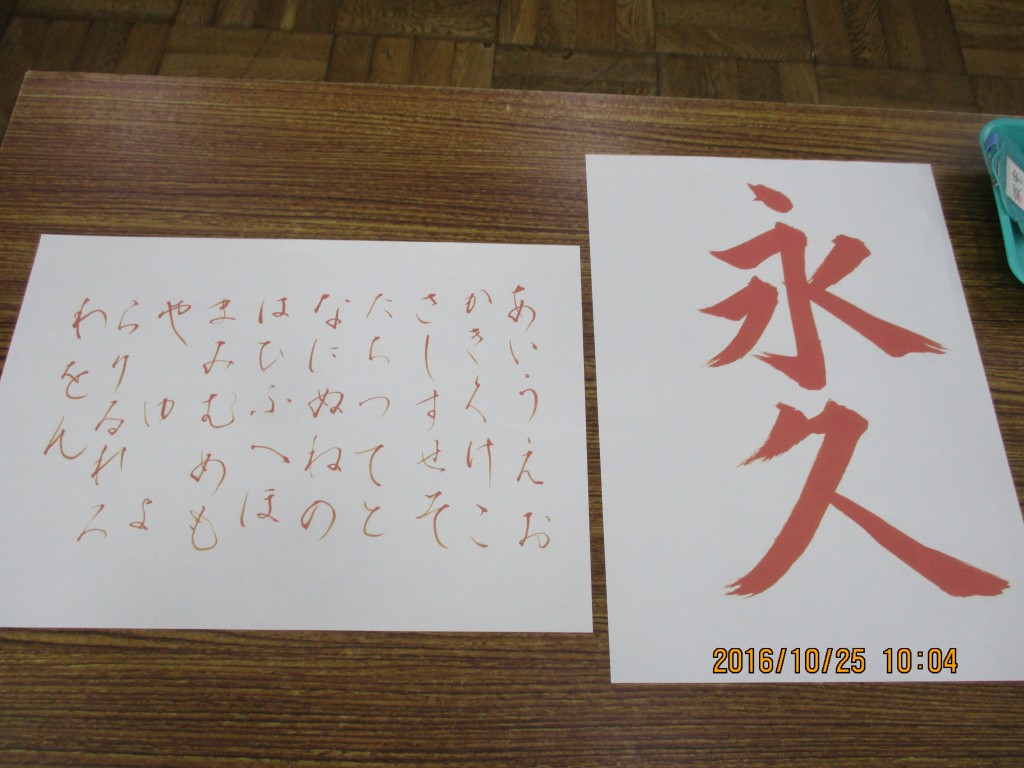 永久
あいうえお
かきくけこ
さしすせそ
たちつてと
なにぬねの
はひふへほ
まみむめも
やゆよ
らりるれろ
わをん
2016/10/25 10:04